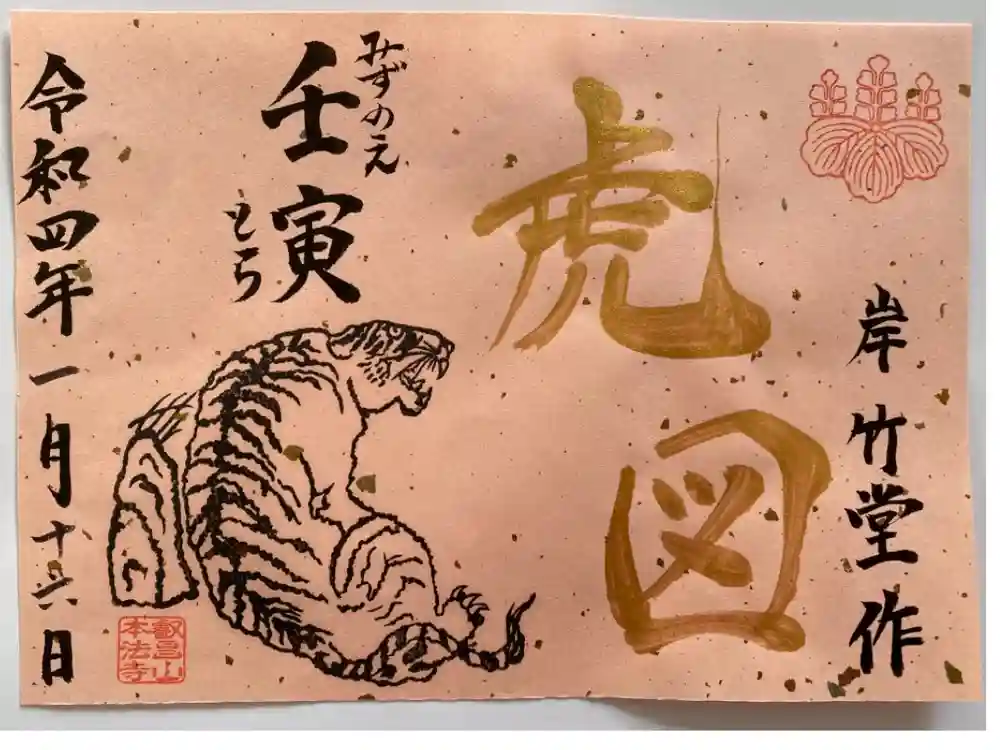 岸竹堂作
虎図
みずのえ
壬寅
とら
令和四年一月十六日
叡昌山
本法寺